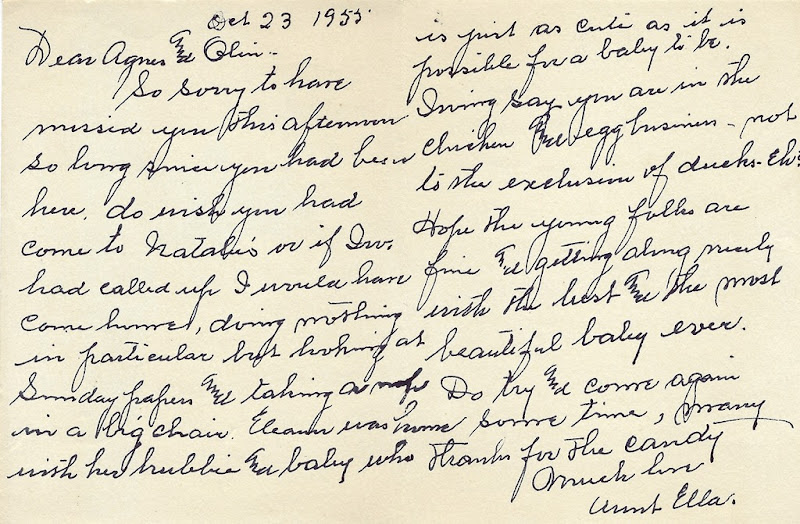 Oct 23 1955
Dear Agnes and Olin-
So sorry to have
missed you this afternoon
so long since you had been
here. do wish you had
come to Natalie's or if Irv.
had called up I would have
come home, doing nothing
in particular but looking at
Sunday papers and taking a nap
in a big chair. Eleanor was home
with her hubbie and baby who
is just as cute as it is
possible for a baby to be.
Irving says you are in the
chicken and egg business - not
to the exclusion of ducks - Eh?
Hope the young folks are
fine and getting along nicely
with the best and the most
beautiful baby ever.
Do try and come again
some time, many
thanks for the candy
Much love
Aunt Ella.